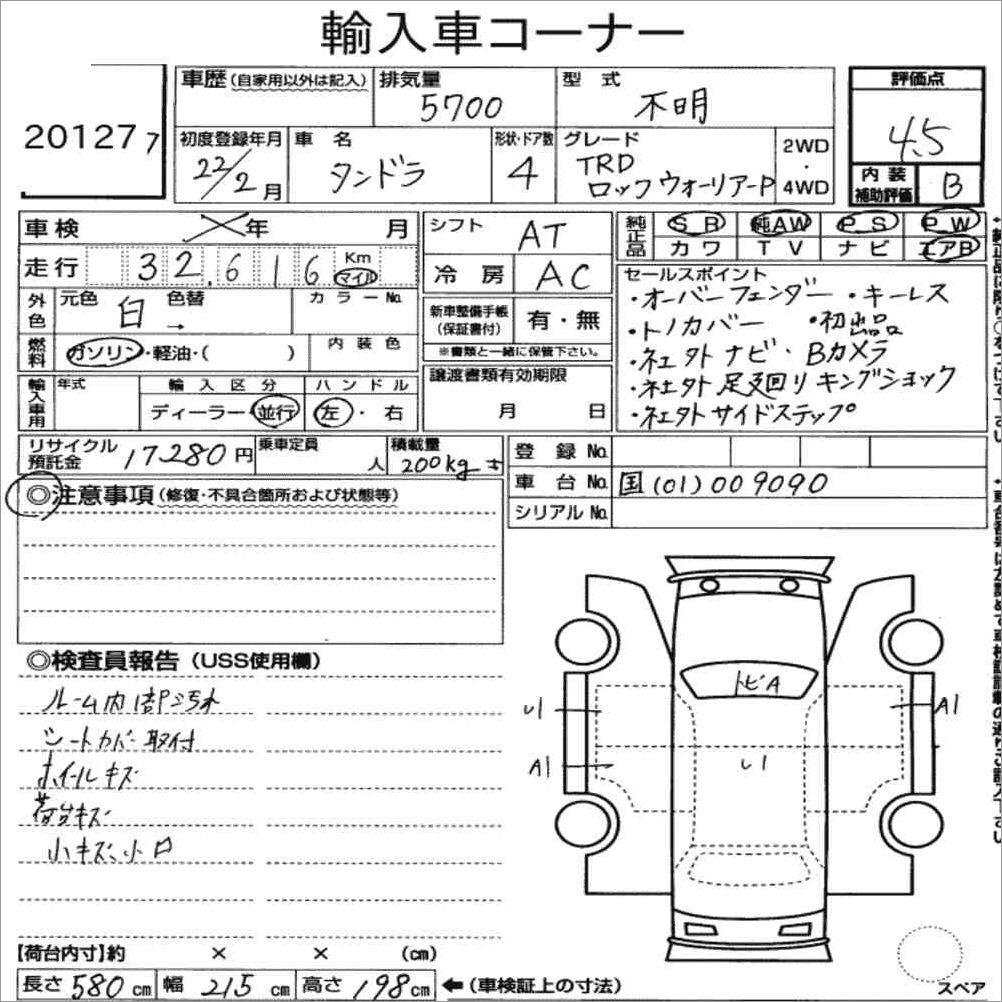 輸入車コーナー
20127 7
車歴(自家用以外は記入)
排気量
5700
型式
不明
評価点
4.5
初度登録年月
22/2月
車名
タンドラ
形状・ドア数
4
グレード
TRD
ロックウォーリアーP
2WD
・
4WD
内装
補助評価
B
車検
年 月
シフト
AT
純正品
SR 純AW PS PW
カワ TV ナビ エアB
走行
32,616
Km
マイル
冷房
AC
セールスポイント
・オーバーフェンダー ・キーレス
・トノカバー ・初出品
・社外ナビ・Bカメラ
・社外足廻りキングショック
・社外サイドステップ
外色
元色
白
→
色替
カラーNo.
新車整備手帳
(保証書付)
有・無
※書類と一緒に保管下さい。
燃料
ガソリン・軽油・( )
内装色
輸入車用
年式
輸入区分
ディーラー・並行
ハンドル
左・右
譲渡書類有効期限
月 日
リサイクル
預託金
17280円
乗車定員
人
積載量
200kg
登録No.
車台No.
国(01)009090
シリアルNo.
◎注意事項(修復・不具合箇所および状態等)
◎検査員報告(USS使用欄)
ルーム内部汚れ
シートカバー取付
ホイールキズ
荷台キズ
小キズ、小凹
トビA
U1
A1
A1
U1
【荷台内寸】約 × × (cm)
長さ580cm 幅215cm 高さ198cm ←(車検証上の寸法)
スペア